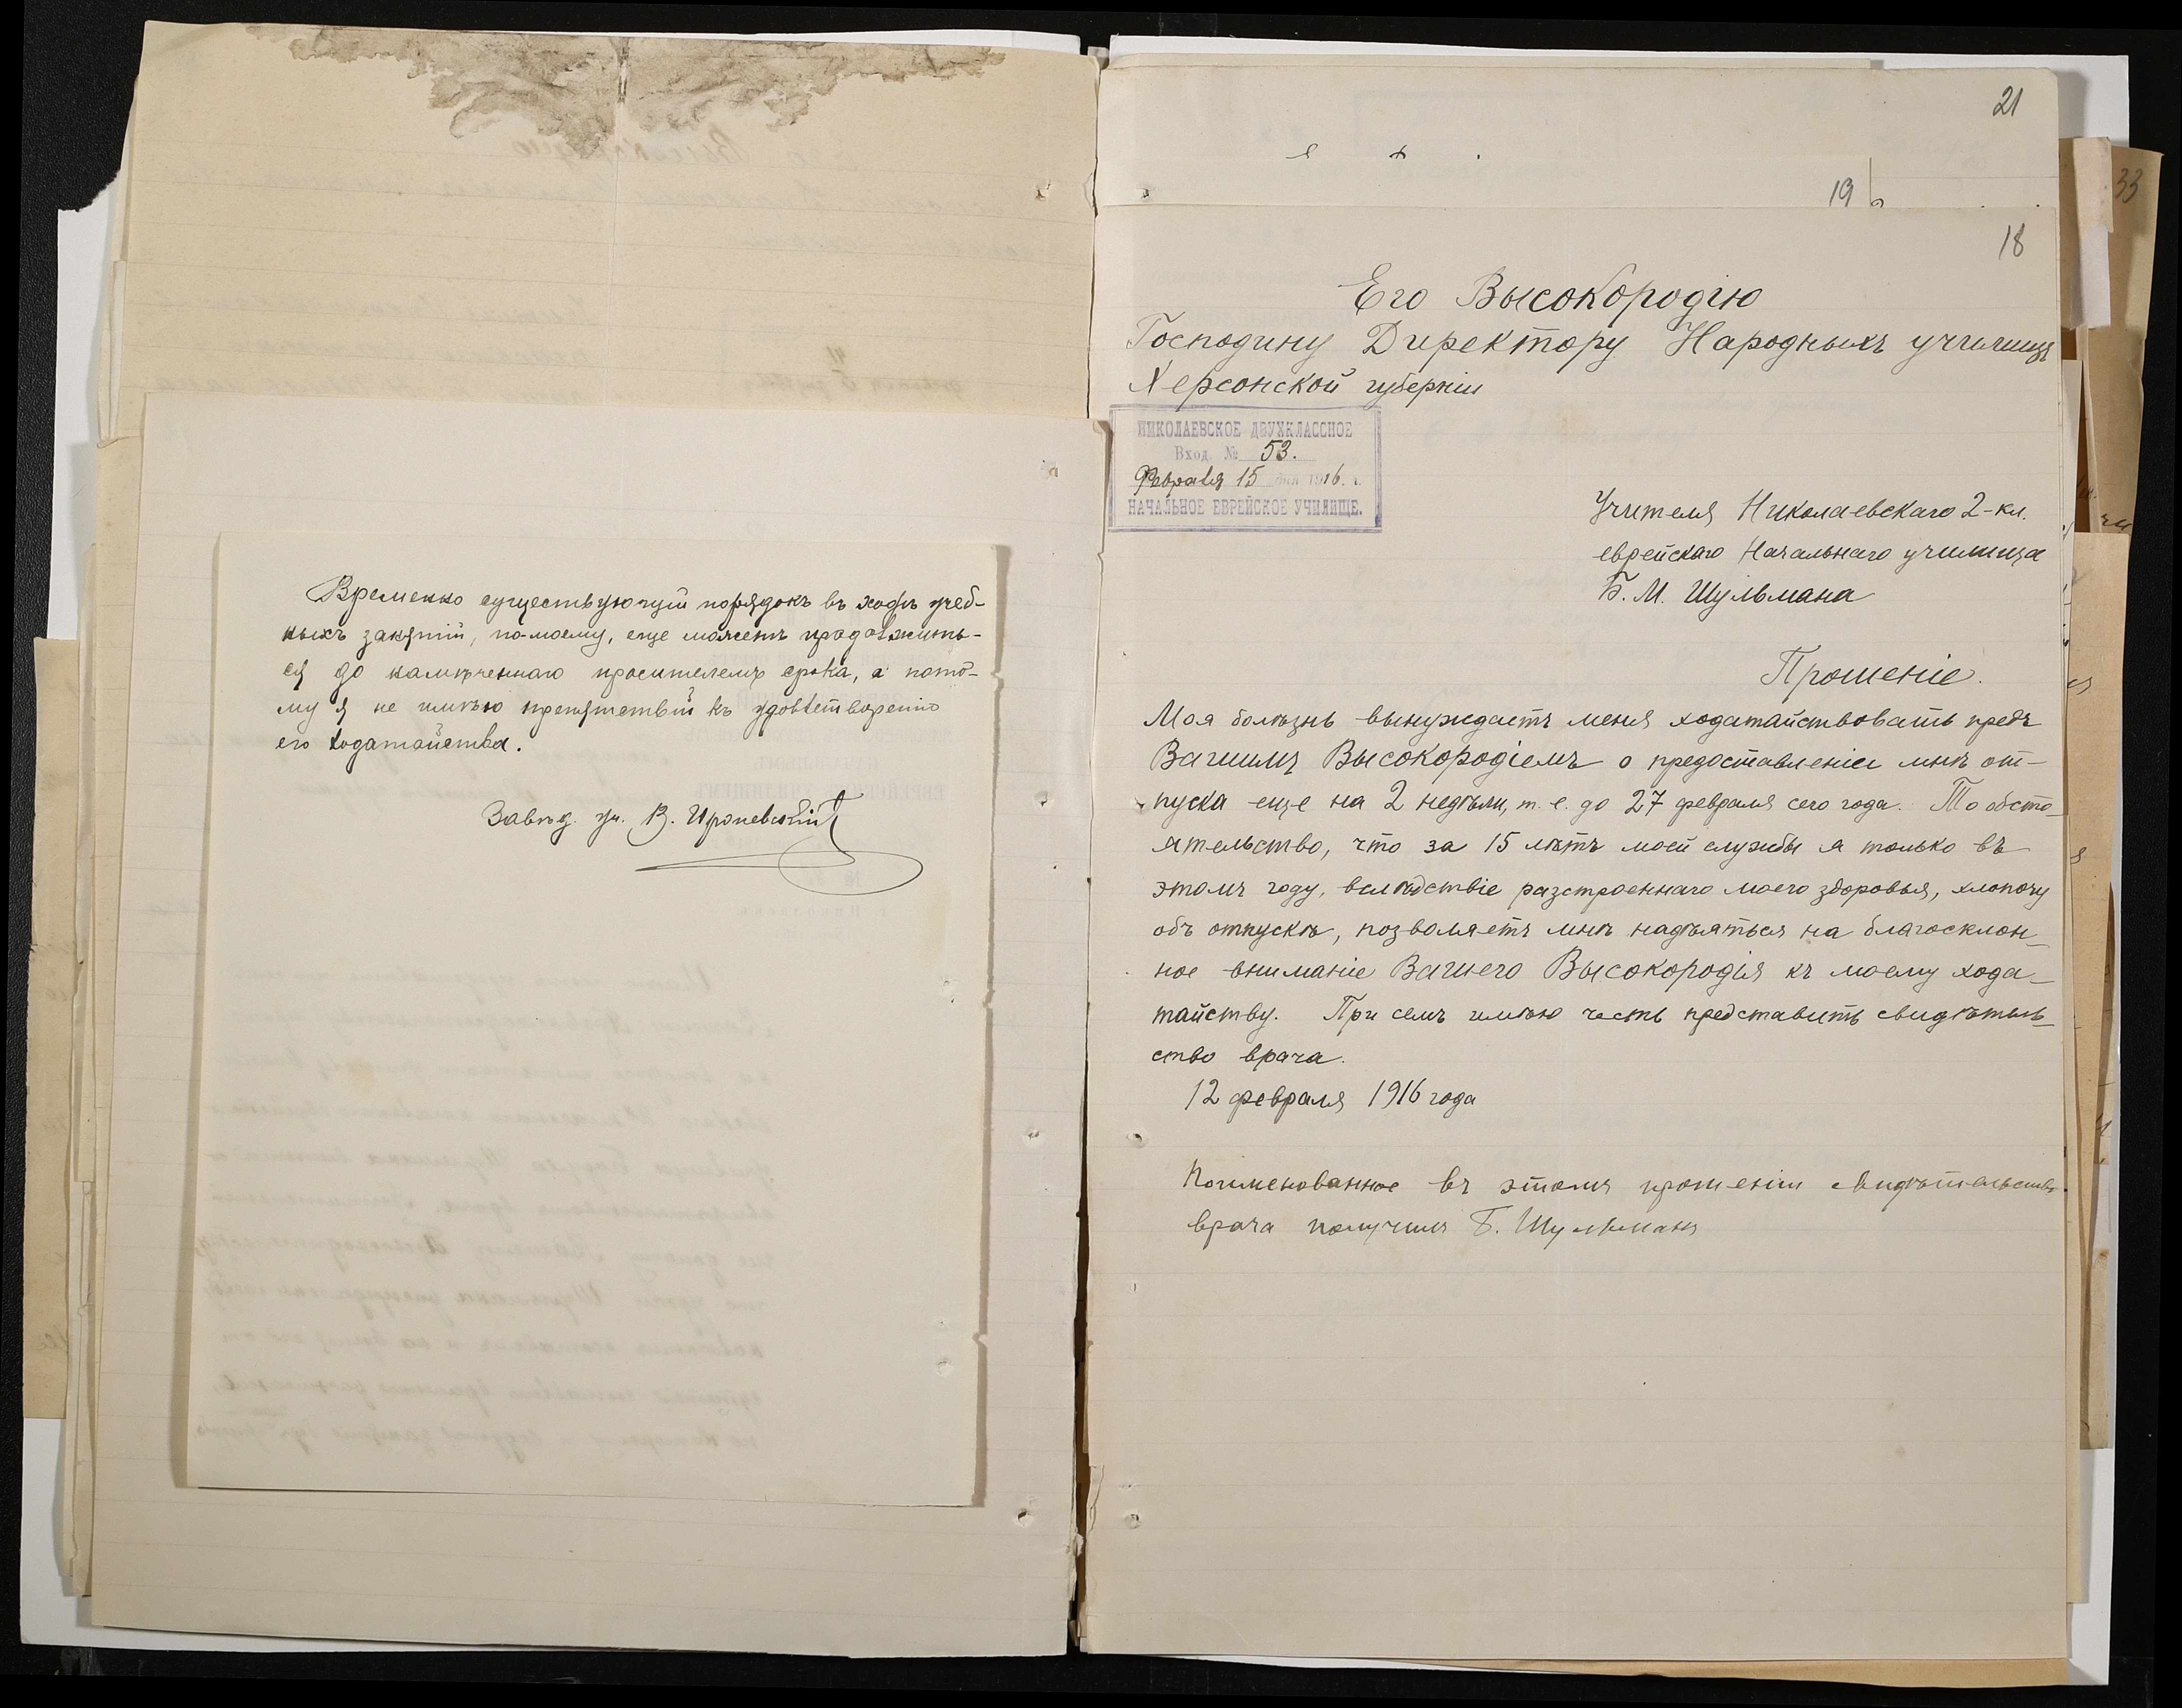 Временно существующій порядокъ въ ходѣ учеб-
ныхъ занятій, по-моему, еще можетъ продолжить-
ся до намѣченнаго просителемъ срока, а пото-
му я не имѣю препятствій къ удовлетворенію
его ходатайства.
Завѣд. уч. В.
21
19
33
18
Его Высокородію
Господину Директору Народныхъ училищъ
Херсонской губерніи
НИКОЛАЕВСКОЕ ДВУХКЛАССНОЕ
Вход. № 53.
Февраля 15 дня 1916 г.
НАЧАЛЬНОЕ ЕВРЕЙСКОЕ УЧИЛИЩЕ.
Учителя Николаевскаго 2-кл.
еврейскаго Начальнаго училища
Б. М. Шульмана
Прошеніе.
Моя болѣзнь вынуждаетъ меня ходатайствовать предъ
Вашимъ Высокородіемъ о предоставленіи мнѣ от-
пуска еще на 2 недѣли, т. е. до 27 февраля сего года. То обсто-
ятельство, что за 15 лѣтъ моей службы я только въ
этомъ году, вслѣдствіе разстроеннаго моего здоровья, хлопочу
объ отпускѣ, позволяетъ мнѣ надѣяться на благосклон-
ное вниманіе Вашего Высокородія къ моему хода-
тайству. При семъ имѣю честь представить свидѣтель-
ство врача.
12 февраля 1916 года
Поименованное въ этомъ прошеніи свидѣтельство
врача получилъ Б. Шульманъ